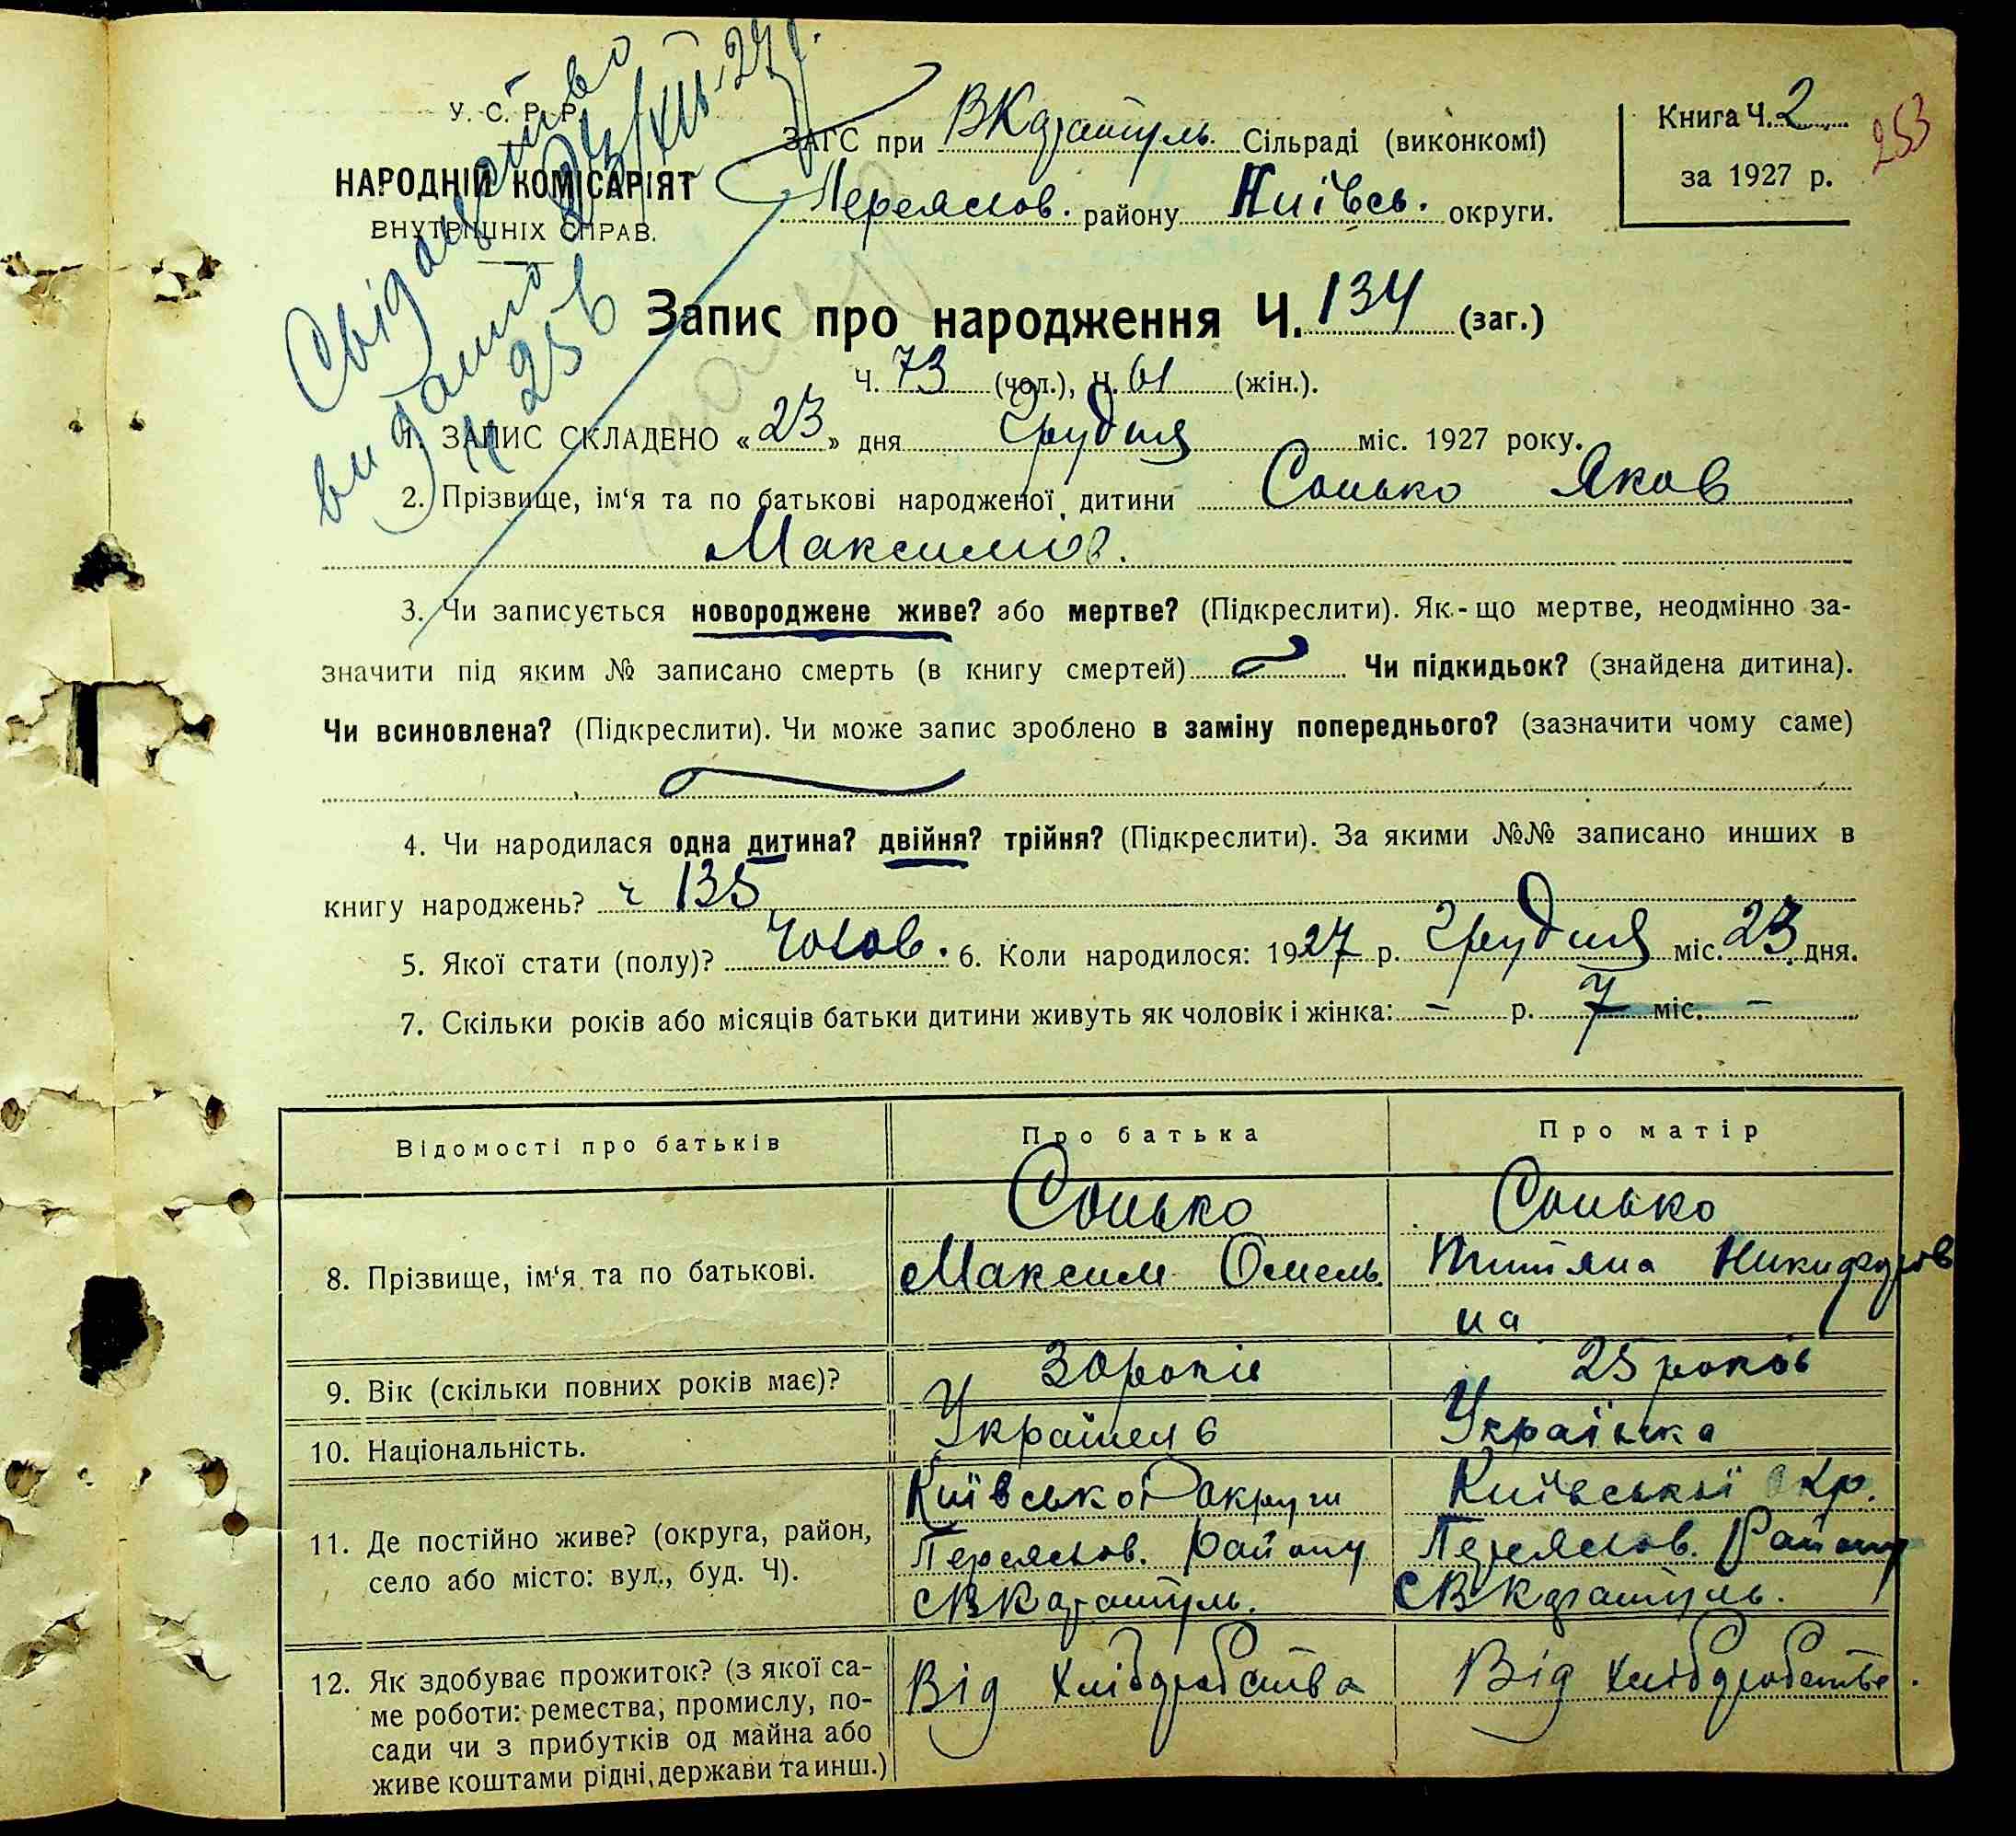 Свідоцтво
видано 23/XII-27 р.
Ч 256
У. С. Р. Р.
НАРОДНІЙ КОМІСАРІЯТ
ВНУТРІШНІХ СПРАВ.
ЗАГС при ВКаратуль. Сільраді (виконкомі)
Переяслов. району Київсь. округи.
Книга Ч. 2
за 1927 р.
253
Запис про народження Ч. 134 (заг.)
Ч. 73 (чол.), Ч. 61 (жін.).
1. ЗАПИС СКЛАДЕНО « 23 » дня Грудня міс. 1927 року.
2. Прізвище, ім‘я та по батькові народженої дитини Сонько Яков
Максимов.
3. Чи записується новороджене живе? або мертве? (Підкреслити). Як-що мертве, неодмінно за-
значити під яким № записано смерть (в книгу смертей) Чи підкидьок? (знайдена дитина).
Чи всиновлена? (Підкреслити). Чи може запис зроблено в заміну попереднього? (зазначити чому саме)
4. Чи народилася одна дитина? двійня? трійня? (Підкреслити). За якими №№ записано инших в
книгу народжень? ч 135
5. Якої стати (полу)? Чолов. 6. Коли народилося: 1927 р. Грудня міс. 23 дня.
7. Скільки років або місяців батьки дитини живуть як чоловік і жінка: – р. 7 міс. –
Відомості про батьків Про батька Про матір
Сонько Сонько
8. Прізвище, ім‘я та по батькові. Максим Омель. Титяна Никифоров
на
9. Вік (скільки повних років має)? 30 років 25 років
10. Національність. Українець Українка
Київської округи Київської Окр.
11. Де постійно живе? (округа, район, Переяслов. Району Переяслов. Району
село або місто: вул., буд. Ч). СВКаратуль. СВКаратуль.
12. Як здобуває прожиток? (з якої са- Від хліборобства Від хліборобства.
ме роботи: ремества, промислу, по-
сади чи з прибутків од майна або
живе коштами рідні, держави та инш.)